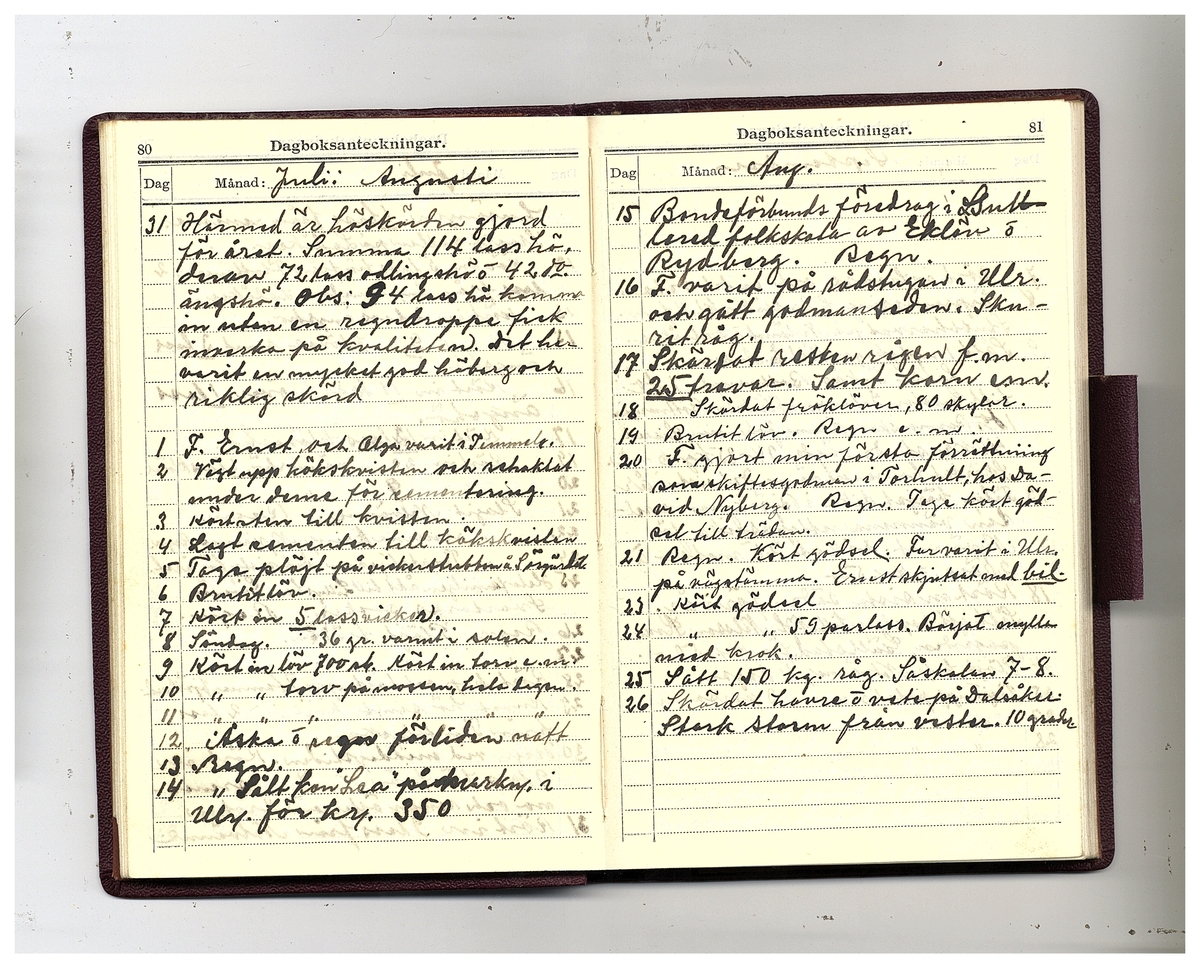 80
Dagboksanteckningar.
Dag
Månad: Juli: Augusti
31 Härmed är höskörden gjord
för året. Summa 114 lass hö.
derav 72 lass odlingshö o 42 do.
ängshö. Obs: 94 lass hö komm
in utan en regndroppe fick
inverka på kvaliteten. Det har
varit en mycket god höberg och
riklig skörd
1 F. Ernst och Olga varit i Timmele.
2 Vägt upp kökskvisten och schaktat
under denna för cementering.
3 Kört sten till kvisten.
4 Lagt cementen till kökskvisten
5 Tage plöjt på vickerstubben å
6 Brutit löv.
7 Kört in 5 lass vicker.
8 Söndag. 36 gr. varmt i solen.
9 Kört in löv 700 st. Kört in torv e.m.
10 " " torv på mossen, hela dagen.
11 " " " " " "
12 Åska o regn förliden natt
13 Regn.
14 " Sålt kon "Lea" på markn. i
Ulr. för kr. 350
Dagboksanteckningar.
81
Dag
Månad: Aug.
15 Bondeförbunds föredrag i
tered folkskola av Eklöv o
Rydberg. Regn.
16 F. varit på rådstugan i Ulr.
och gått godmanseden. Sku-
rit råg.
17 Skördat resten rågen f.m.
25 travar. Samt korn em.
18 Skördat fröklöver, 80 skylar.
19 Brutit löv. Regn e.m.
20 F. gjort min första förrättning
som skiftesgodman i Torhult, hos Da-
vid Nyberg. Regn. Tage kört göd-
sel till trädan.
21 Regn. Kört gödsel. Far varit i Ulr.
på vägstämma. Ernst skjutsat med bil.
23 Kört gödsel
24 " " 59 parlass. Börjat mylla
med krok.
25 Sått 150 kg. råg. Såskalan 7-8.
26 Skördat havre o vete på Dalsåker
Stark storm från vester. 10 grader